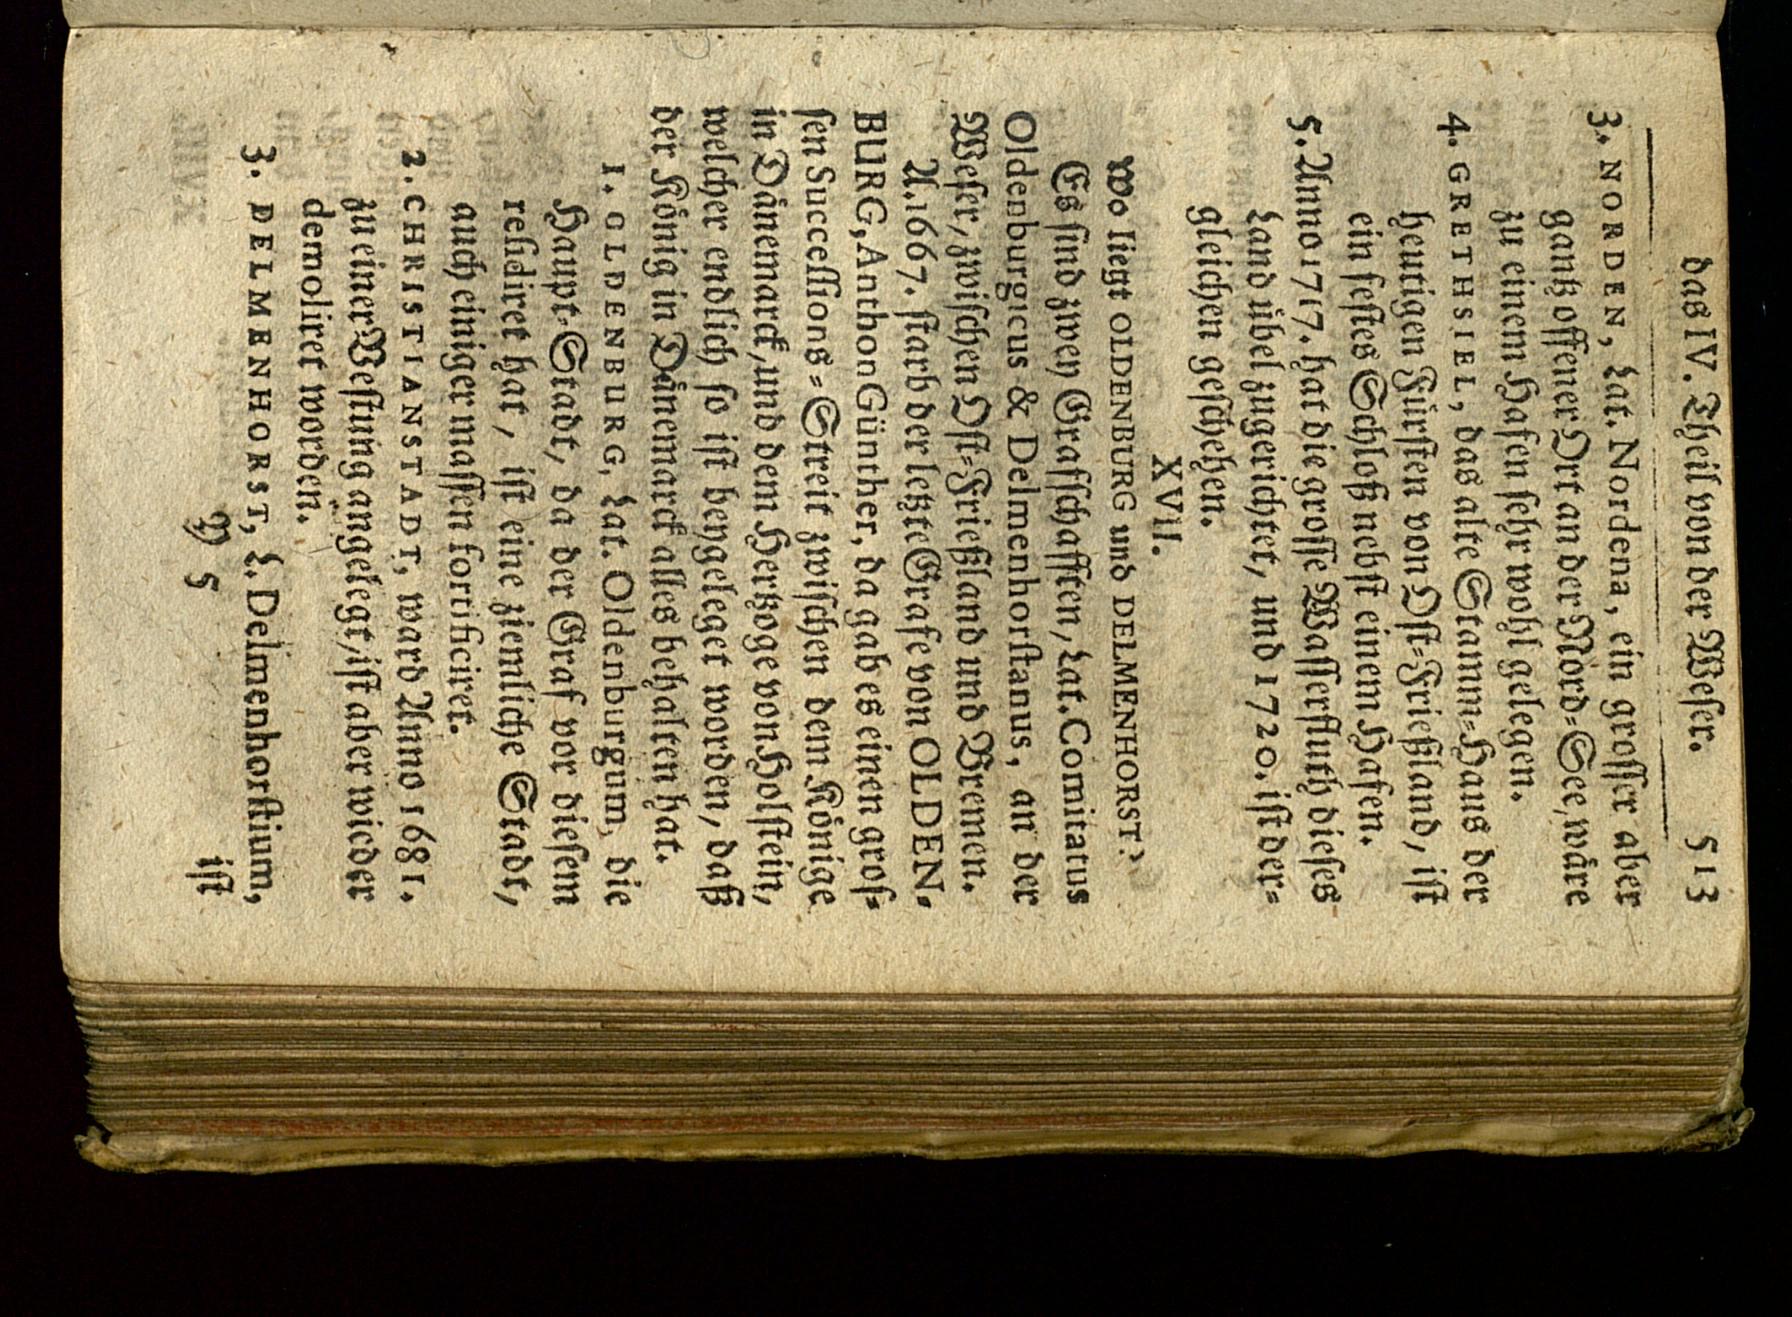 das IV. Theil von der Weser. 513
3. NORDEN, Lat. Nordena, ein grosser aber
gantz offener Ort an der Nord-See, wäre
zu einem Hafen sehr wohl gelegen.
4. GRETHSIEL, das alte Stamm-Haus der
heutigen Fürsten von Ost-Frießland, ist
ein festes Schloß nebst einem Hafen.
5. Anno 1717. hat die grosse Wasserfluth dieses
Land übel zugerichtet, und 1720. ist der-
gleichen geschehen.
XVII.
Wo liegt OLDENBURG und DELMENHORST?
Es sind zwey Grafschafften, Lat. Comitatus
Oldenburgicus & Delmenhorstanus, an der
Weser, zwischen Ost-Frießland und Bremen.
A. 1667. starb der letzte Grafe von OLDEN-
BURG, Anthon Günther, da gab es einen gros-
sen Successions-Streit zwischen dem Könige
in Dänemarck, und dem Hertzoge von Holstein,
welcher endlich so ist beygeleget worden, daß
der König in Dänemarck alles behalten hat.
1. OLDENBURG, Lat. Oldenburgum, die
Haupt-Stadt, da der Graf vor diesem
residiret hat, ist eine ziemliche Stadt,
auch einiger massen fortificiret.
2. CHRISTIANSTADT, ward Anno 1681.
zu einer Vestung angelegt, ist aber wieder
demoliret worden.
3. DELMENHORST, L. Delmenhorstium,
P 5 ist